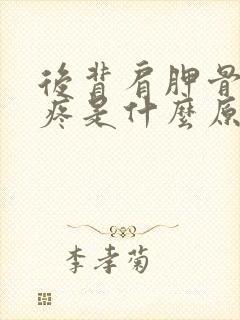 後背肩胛骨
疼是什麼原
李孝菊